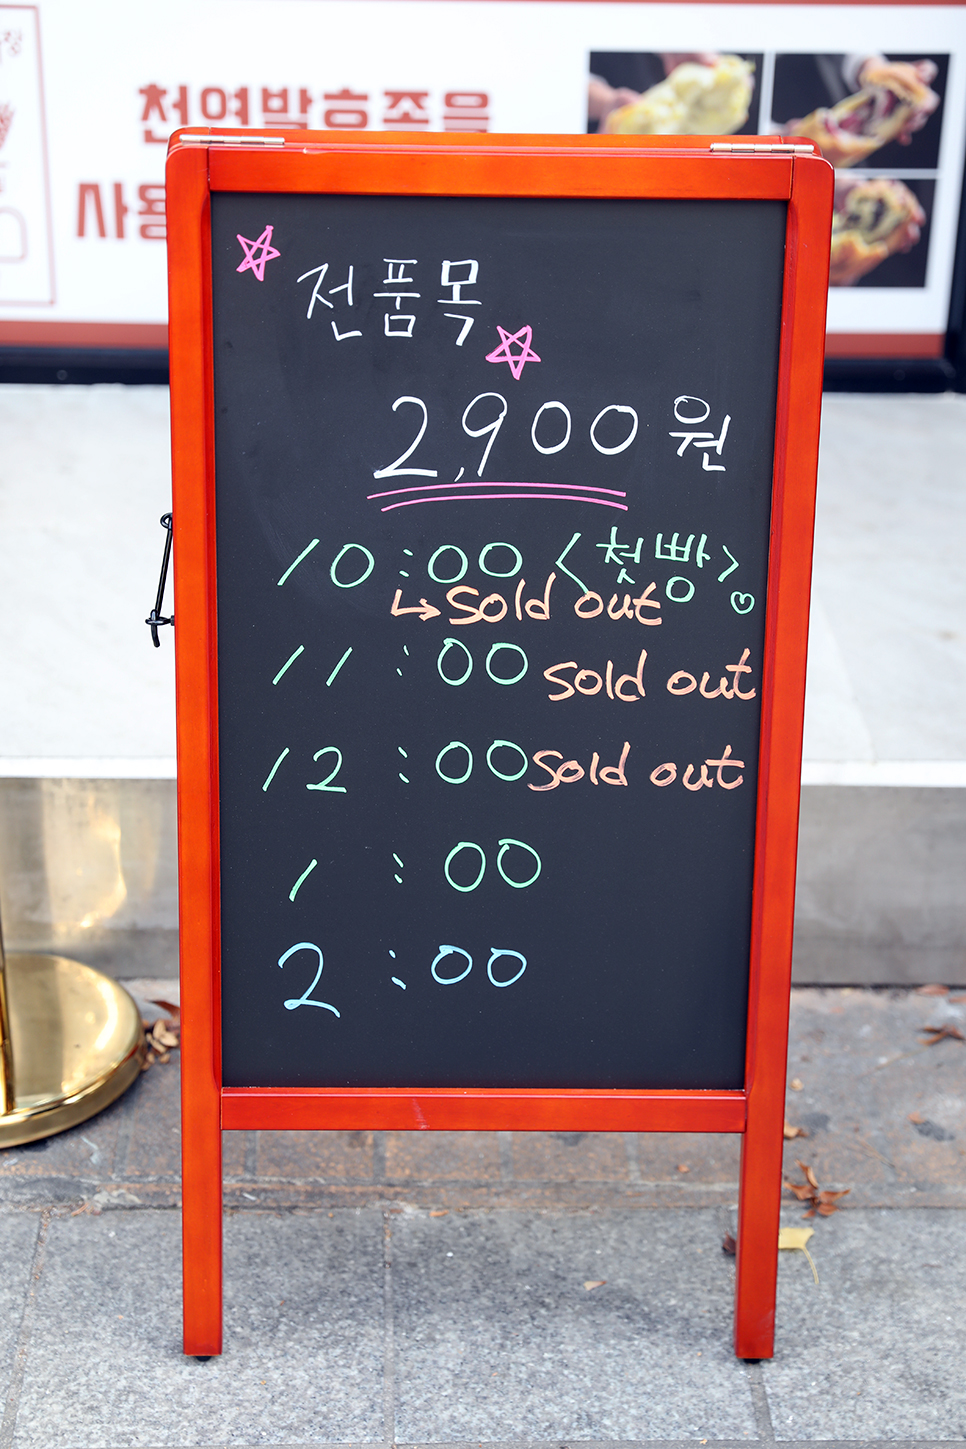 천연발효종을
사용
전품목
2,900원
10:00 <첫빵>
↳ sold out
11:00 sold out
12:00 sold out
1:00
2:00